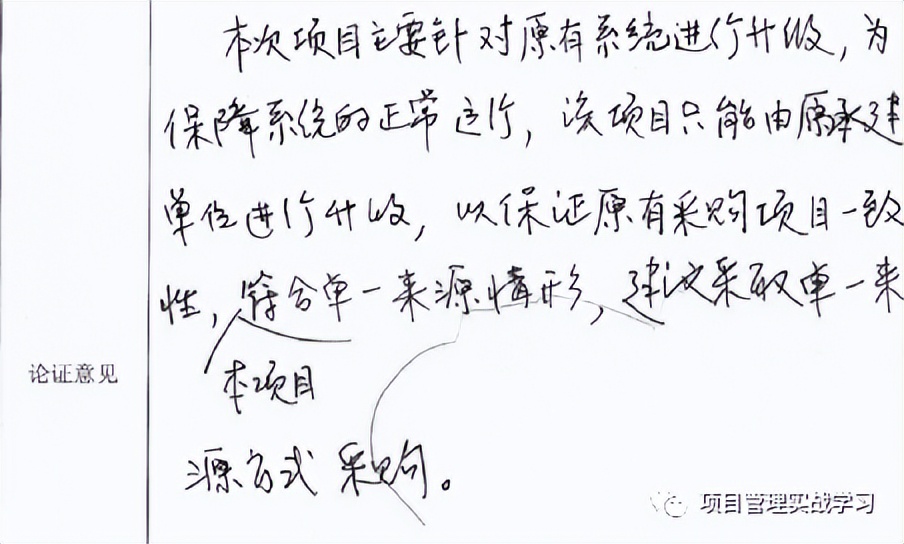 本次项目主要针对原有系统进行升级，为
保障系统的正常运行，该项目只能由原承建
单位进行升级，以保证原有采购项目一致
性，符合单一来源情形，建议采取单一来
本项目
源方式采购。
论证意见
项目管理实战学习